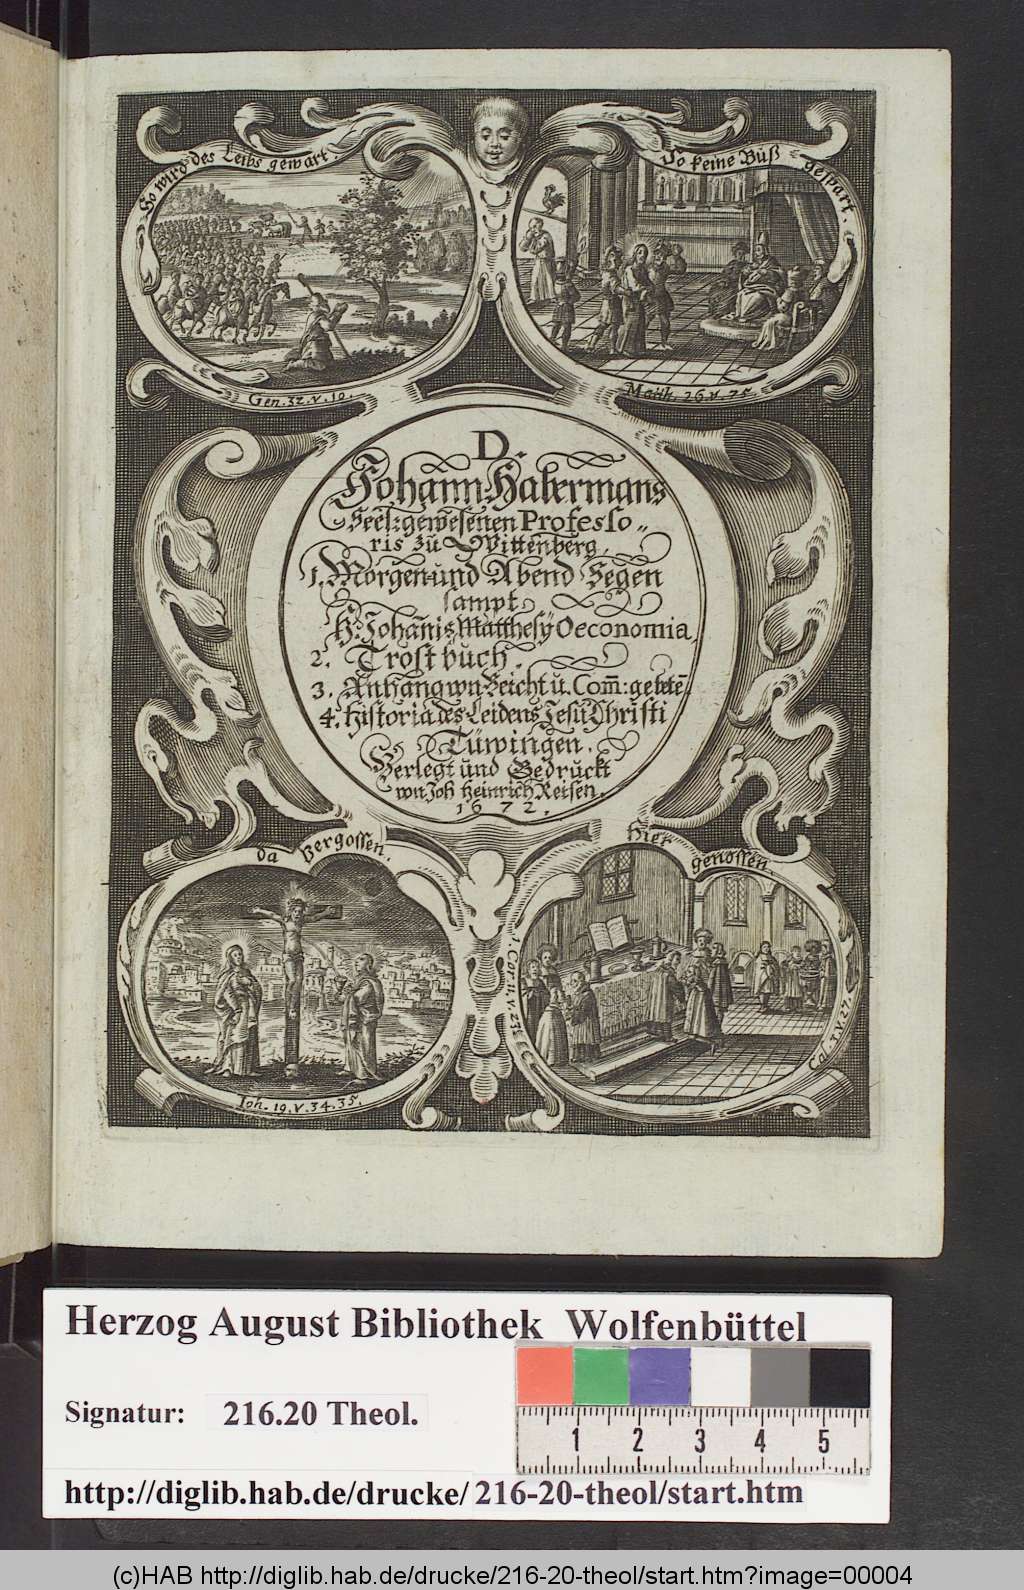 So wird des Leibs gewart.
So keine Buß gespart.
Gen. 32. v. 10.
Matth. 26 v. 75.
D.
Johann Habermans
Seel: gewesenen Professo-
ris zu Wittenberg,
1. Morgen und Abend Segen
sampt
H: Johannis Matthesÿ Oeconomia
2. Trost buch.
3. Anhang von Beicht u. Com̄: gebetē
4. Historia des Leidens Jesu Christi
Tüwingen.
Verlegt und Gedruckt
von Joh Heinrich Reisen.
1672.
da Vergossen.
Hier genossen.
1. Cor. 11. v. 23.
Gal. 3. v. 27.
Joh. 19. v. 34. 35.
Herzog August Bibliothek Wolfenbüttel
Signatur: 216.20 Theol.
1 2 3 4 5
http://diglib.hab.de/drucke/216-20-theol/start.htm
(c)HAB http://diglib.hab.de/drucke/216-20-theol/start.htm?image=00004